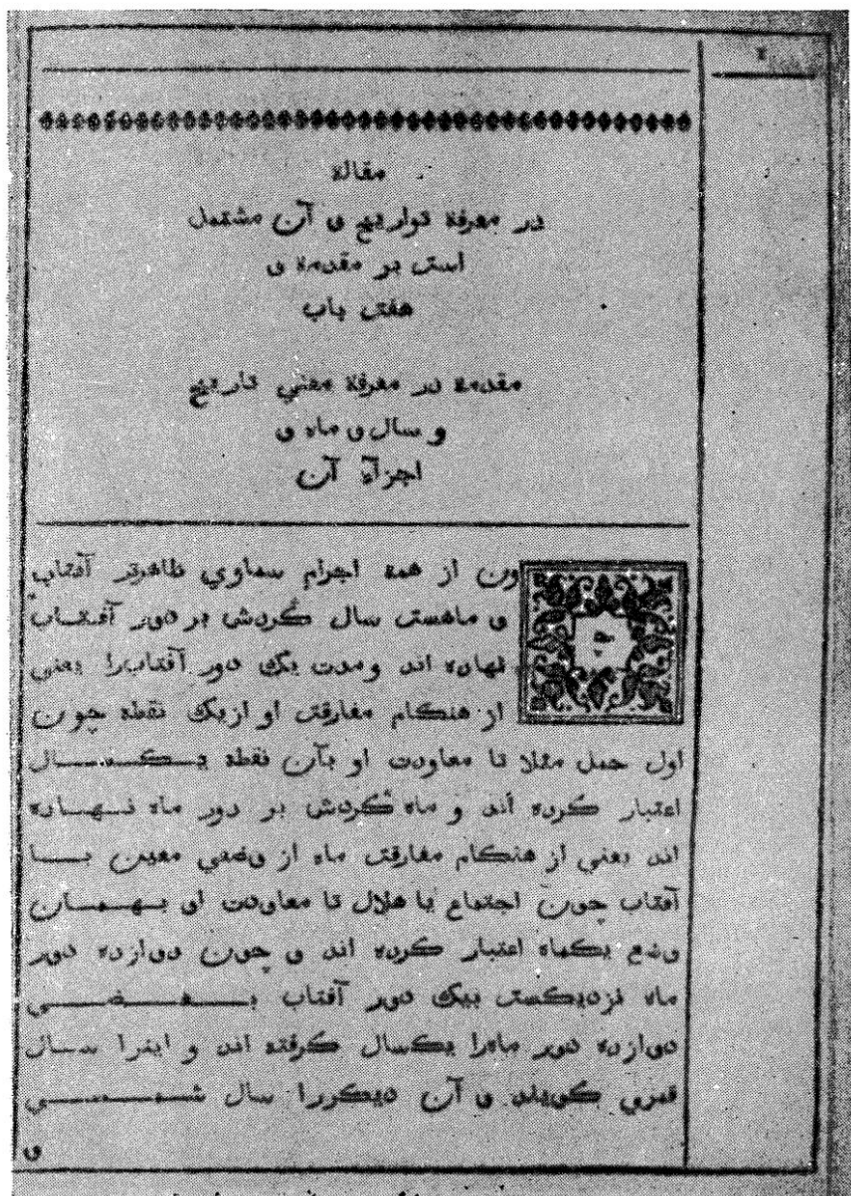 مقالة
در معرفة تواریخ و آن مشتمل
است بر مقدمه و
هفت باب
مقدمه در معرفة معني تاریخ
و سال و ماه و
اجزآء آن
چون از همه اجرام سماوي ظاهرتر آفتاب
و ماهست سال گردش بر دور آفتاب
نهاده اند ومدت یک دور آفتاب‌را یعني
از هنکام مفارقت او ازیک نقطه چون
اول حمل مثلا تا معاودت او بآن نقطه یکسال
اعتبار کرده اند و ماه گردش بر دور ماه نهاده
اند یعني از هنکام مفارقت ماه از وضعي معین با
آفتاب چون اجتماع یا هلال تا معاودت او بهمان
وضع یکماه اعتبار کرده اند و چون دوازده دور
ماه نزدیکست بیک دور آفتاب بعضي
دوازده دور ماه‌را یکسال کرفته اند و اینرا سال
قمري کویند و آن دیکررا سال شمسي
و